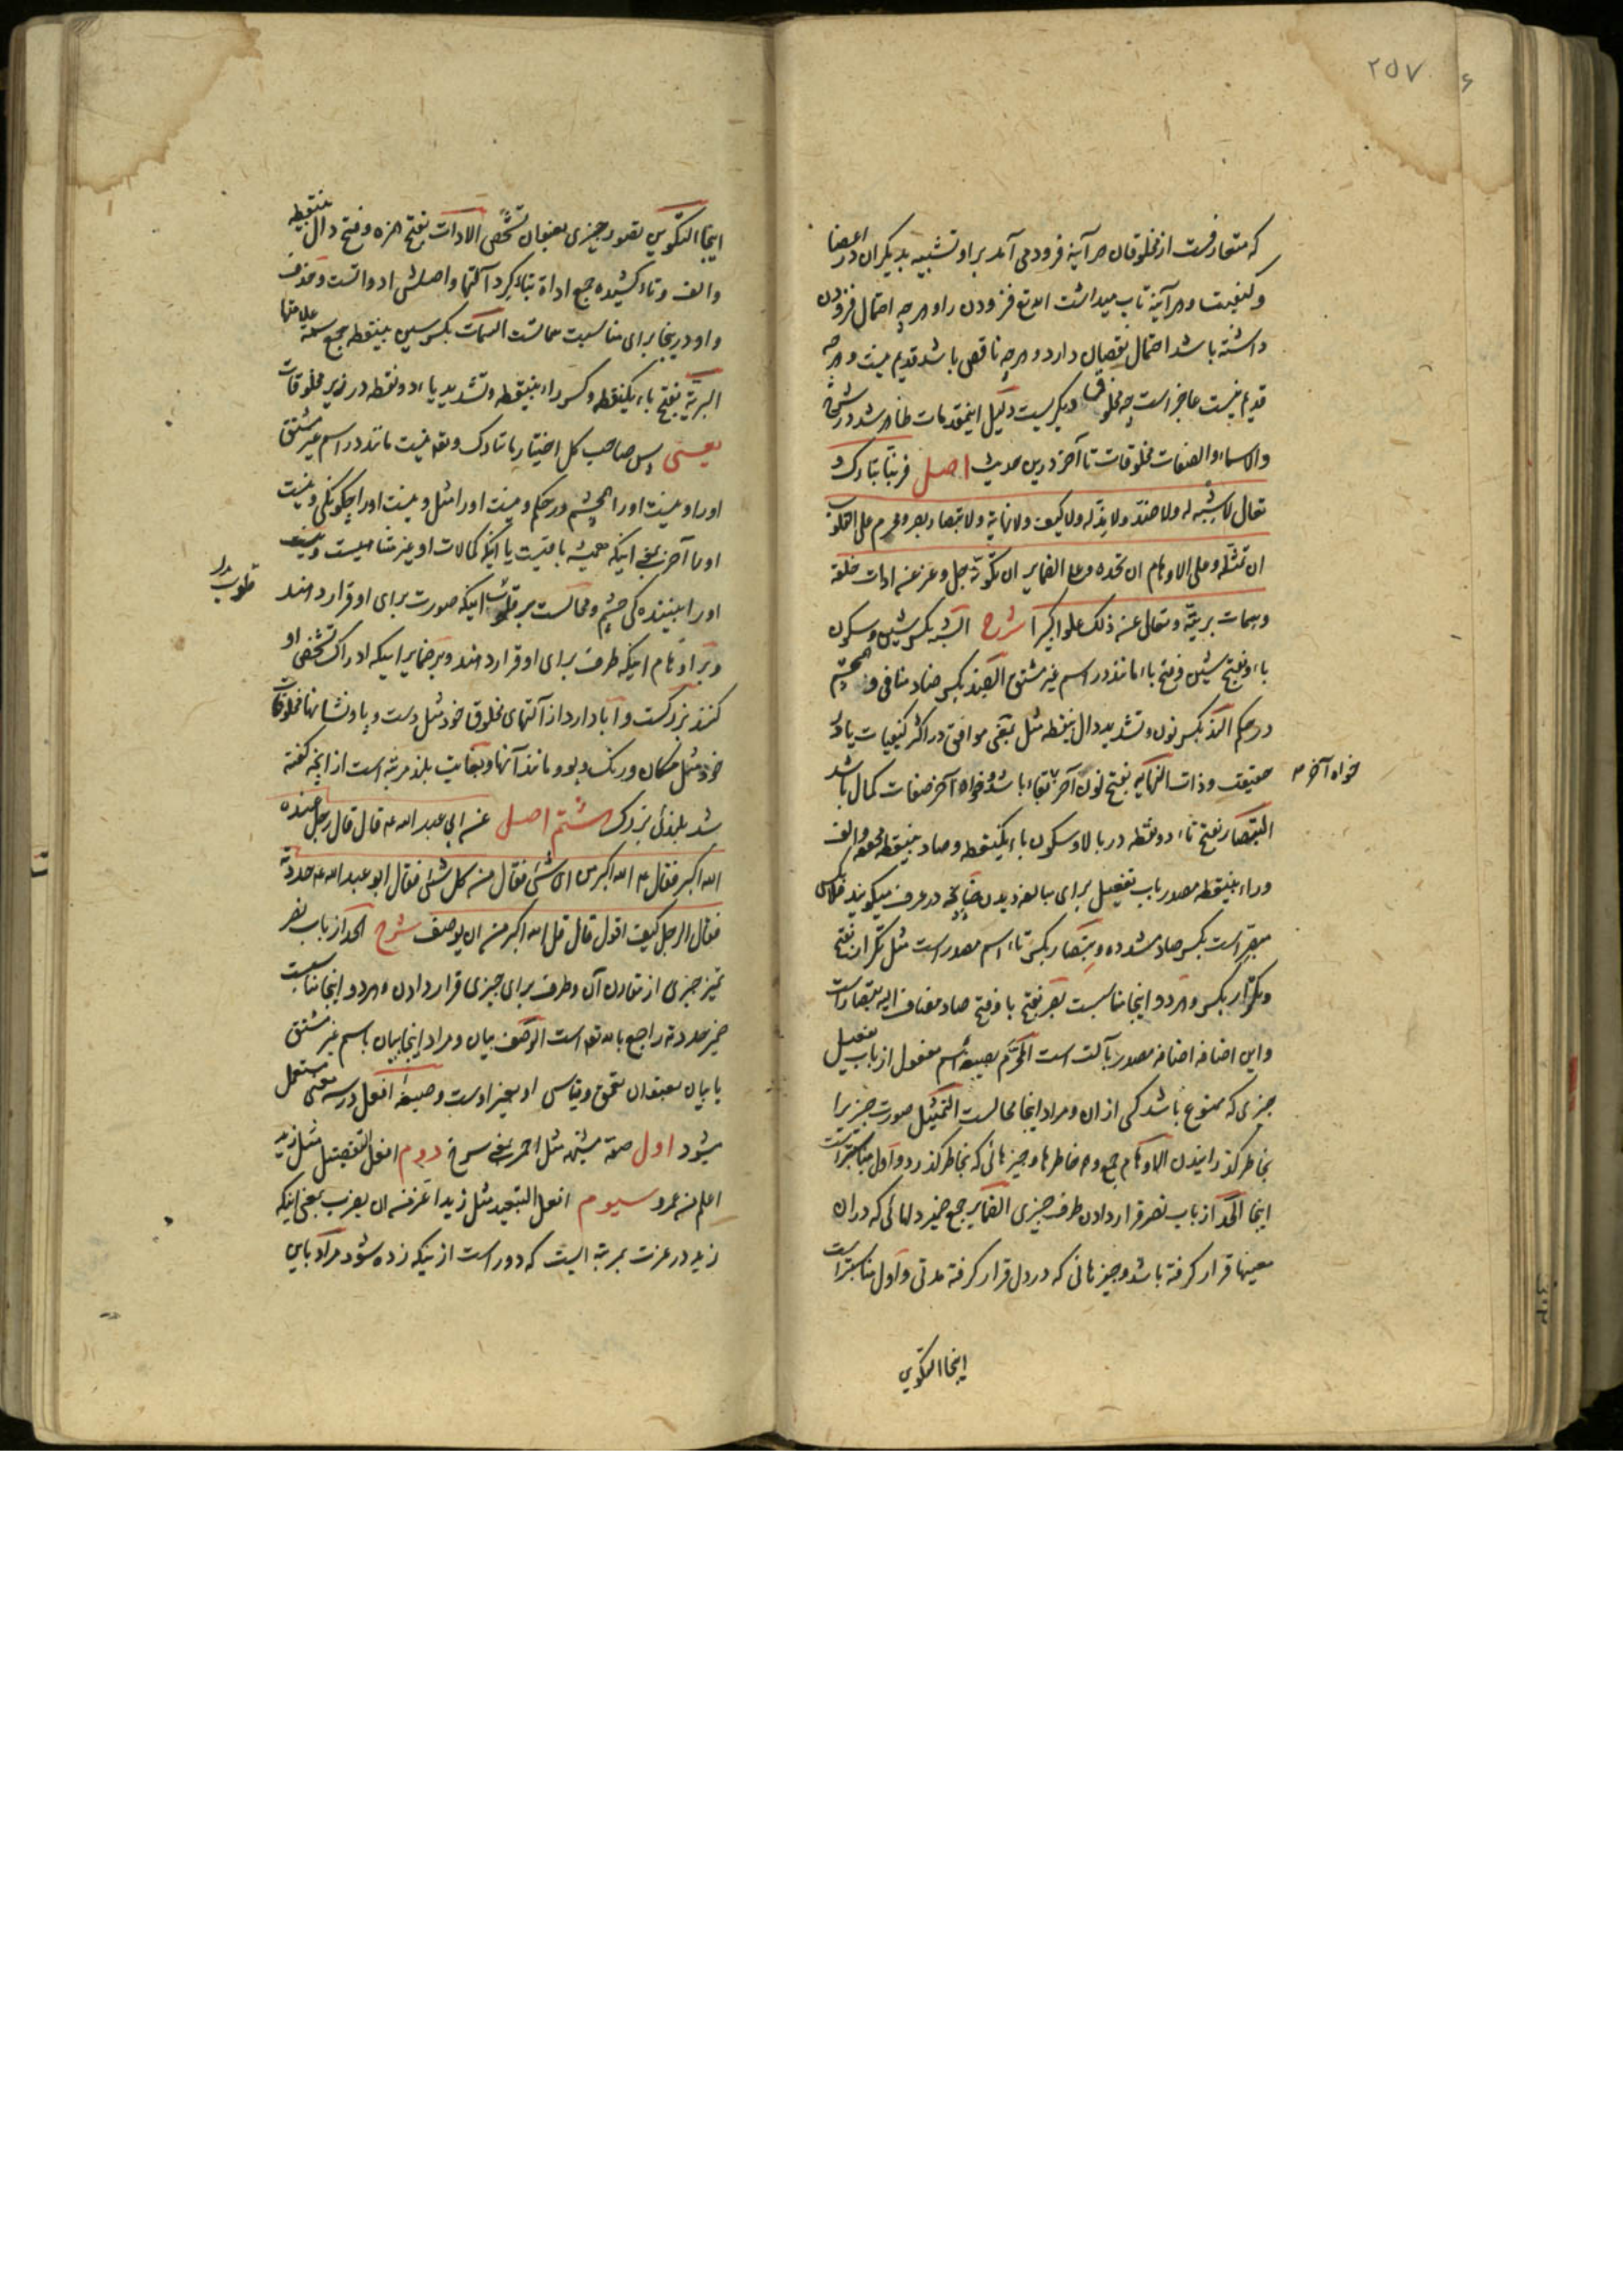 ۲۵۷
که متعارفست از مخلوقان هر آینه فرود می آمد بر او تشبیه بدیگران در اعضا
و کیفیت و هر آینه تاب میداشت الله تع فزودن را و هر چه احتمال فزودن
داشته باشد احتمال نقصان دارد و هر چه ناقص باشد قدیم نیست و هر چه
قدیم نیست عاجز است چه مخلوق دیگریست دلیل اینمقدمات ظاهر شد در شرح
والاسماء والصفات مخلوقات تا آخر درین حدیث اصل فربنا تبارک و
تعالی لا شبه له ولا ضد ولا ند له ولا کیف ولا نهایة ولا تبصار بصر ومحرم علی القلوب
ان تمثله وعلی الاوهام ان تحده وعلی الضمایر ان تکونه جل وعز عن ادات خلقه
وسمات بریته وتعالی عن ذلک علوا کبیرا شرح الشبه بکسر شین و سکون
باء و بفتح شین و فتح باء مانند در اسم غیر مشتق الضد بکسر ضاد منافی و همچشم
در حکم الند بکسر نون و تشدید دال بینقطه مثل بمعنی موافق در اکثر کیفیات یا در
حقیقت و ذات النهایه بفتح نون آخر بقاء باشد و خواه آخر صفات کمال باشد
خواه آخر
التبصار بفتح تاء دو نقطه در بالا و سکون باء یکنقطه و صاد بینقطه محففه و الف
وراء بینقطه مصدر باب تفعیل برای مبالغه دیدن چنانچه در عرف میگویند فلان کس
مبصر است بکسر صاد مشدده و تبصار بکسر تاء اسم مصدر است مثل تکرار بفتح
و تکرار بکسر و هر دو اینجا مناسبت بصر بفتح با و فتح صاد مضاف الیه تبصار است
و این اضافه اضافه مصدر بآلت است المحرم بصیغه اسم مفعول از باب تفعیل
چیزی که ممنوع باشد کسی از ان و مراد اینجا محالست التمثیل صورت چیزیرا
بخاطر گذرانیدن الاوهام جمع وهم خاطرها و چیزهائی که بخاطر گذرد و اول مناسبتر است
اینجا الحد از باب نصر قرار دادن طرف چیزی الضمایر جمع ضمیر دلهائی که در ان
معنیها قرار گرفته باشد و چیزهائی که در دل قرار گرفته مدتی و اول مناسبتر است
اینجا التکوین
اینجا التکوین تصور چیزی بعنوان تشخص الادات بفتح همزه و فتح دال بینقطه
والف و تاء کشیده جمع اداة بتاء گرد آلتها و اصلش ادوات است و حذف
واو در ینجا برای مناسبت سماتست السمات بکسر سین بینقطه جمع سمة علامتها
البریة بفتح باء یکنقطه و کسر راء بینقطه و تشدید یاء دو نقطه در زیر مخلوقات
یعنی پس صاحب کل اختیار ما تبارک و تعه نیست مانند در اسم غیر مشتق
او را و نیست او را همچشم در حکم و نیست او را مثل و نیست او را چگونگی و نیست
او را آخر بمعنی اینکه همیشه باقیست یا اینکه کمالات او غیر متناهیست و نیست
او را بیننده گی چشم و محالست بر قلوب اینکه صورت برای او قرار دهند
قلوب
و بر اوهام اینکه طرف برای او قرار دهند و بر ضمایر اینکه ادراک تشخص او
کنند بزرگست و آبا دارد از آلتهای مخلوق خود مثل دست و پا و نشانها مخلوقات
خود مثل مکان و رنگ و بو و مانند آنها و بغایت بلند مرتبه است از انچه گفته
شد بلندئی بزرگ هشتم اصل عن ابی عبد الله عه قال قال رجل عنده
الله اکبر فقال عه الله اکبر من ای شئ فقال من کل شئ فقال ابو عبد الله عه حددته
فقال الرجل کیف اقول قال قل الله اکبر من ان یوصف شرح الحد از باب نصر
تمیز چیزی از مقارن آن و طرف برای چیزی قرار دادن و هر دو اینجا مناسبت
ضمیر حددته راجع بالله تعه است الوصف بیان و مراد اینجا بیان باسم غیر مشتق
یا بیان بعنوان تعمق و قیاس او بغیر اوست و صیغه افعل در سه معنی مستعمل
میشود اول صفة مشبهه مثل احمر بمعنی سرخ دوم افعل التفضیل مثل زید
اعلم من عمرو سیوم افعل التبعید مثل زید اعز من ان یضرب بمعنی اینکه
زید در عزت بمرتبه ایست که دور است از اینکه زده شود مراد باین